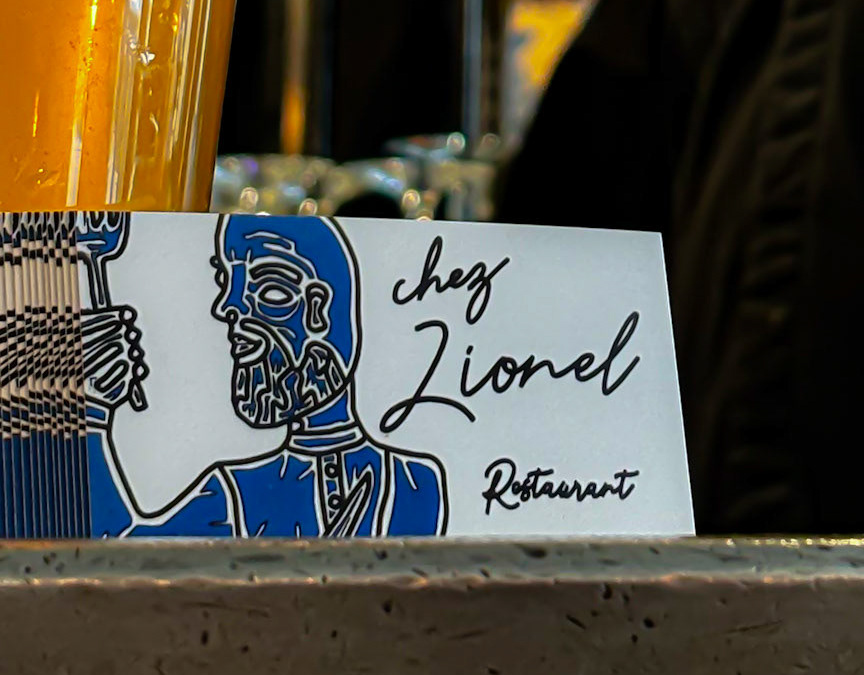 chez
Lionel
Restaurant